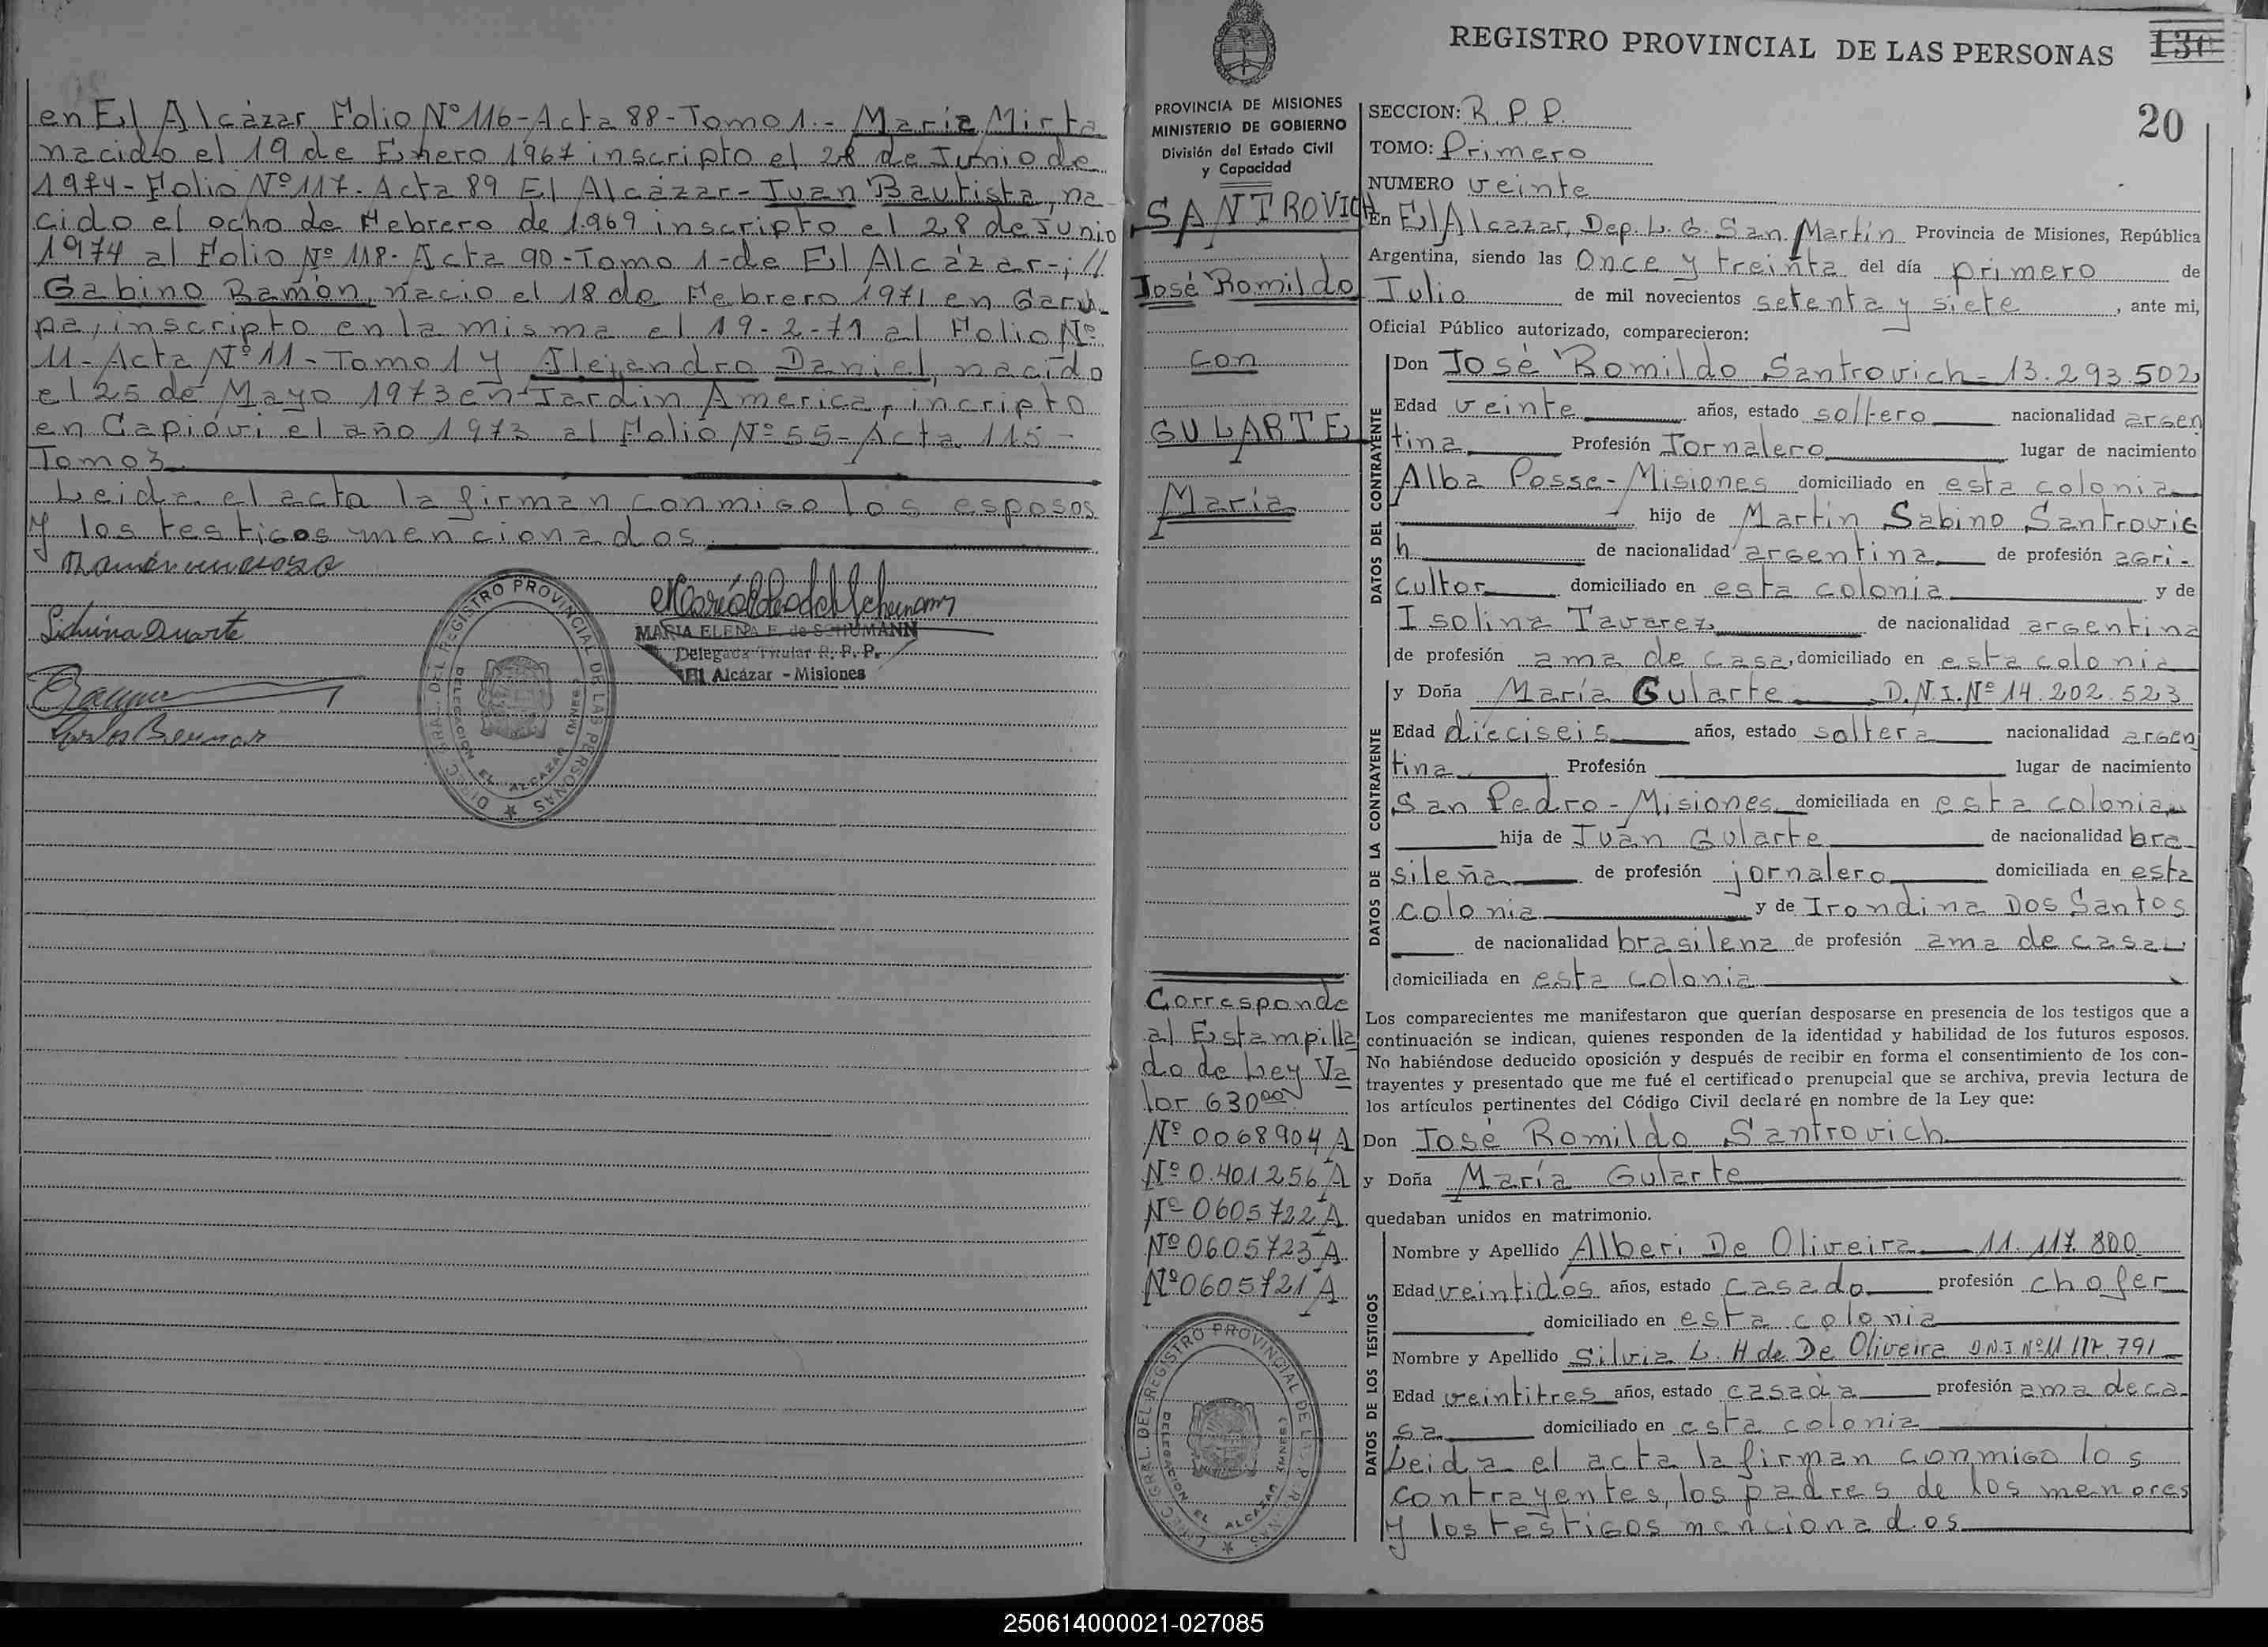 en El Alcázar Folio Nº 116-Acta 88-Tomo 1.- Maria Mirta
nacido el 19 de Enero 1967 inscripto el 28 de Junio de
1974- Folio Nº 117- Acta 89 El Alcázar- Juan Bautista, na
cido el ocho de Febrero de 1.969 inscripto el 28 de Junio
1974 al Folio Nº 118- Acta 90-Tomo 1-de El Alcázar-; //
Gabino Ramón, nacio el 18 de Febrero 1971 en Garu
pa, inscripto en la misma el 19-2-71 al Folio Nº
11- Acta Nº 11- Tomo 1 y Alejandro Daniel, nacido
el 25 de Mayo 1973 en Jardin America, incripto
en Capioví el año 1973 al Folio Nº 55- Acta 115-
Tomo 3
Leida el acta la firman conmigo los esposos
y los testigos mencionados.
MARIA ELENA F. de SCHUMANN
Delegada Titular R. P. P.
El Alcázar - Misiones
DIREC. GRAL. DEL REGISTRO PROVINCIAL DE LAS PERSONAS
DELEGACION EL ALCAZAR (MNES)
REGISTRO PROVINCIAL DE LAS PERSONAS
20
PROVINCIA DE MISIONES
MINISTERIO DE GOBIERNO
División del Estado Civil
y Capacidad
SANTROVICH
José Romildo
con
GULARTE
María
Corresponde
al Estampilla
do de Ley Va
lor 630.00
Nº 0068904 A
Nº 0.401256 A
Nº 0605722 A
Nº 0605723 A
Nº 0605721 A
DIREC. GRAL. DEL REGISTRO PROVINCIAL DE LAS PERSONAS
DELEGACION EL ALCAZAR (MNES)
SECCION: R. P. P.
TOMO: Primero
NUMERO veinte
En El Alcazar, Dep. L. G. San Martín Provincia de Misiones, República
Argentina, siendo las Once y treinta del día primero de
Julio de mil novecientos setenta y siete, ante mi,
Oficial Público autorizado, comparecieron:
DATOS DEL CONTRAYENTE
Don José Romildo Santrovich- 13.293.502
Edad veinte años, estado soltero nacionalidad argen
tina Profesión Jornalero lugar de nacimiento
Alba Posse- Misiones domiciliado en esta colonia
hijo de Martín Sabino Santrovic
h de nacionalidad argentina de profesión agri-
cultor domiciliado en esta colonia y de
Isolina Tavarez de nacionalidad argentina
de profesión ama de casa, domiciliado en esta colonia
DATOS DE LA CONTRAYENTE
y Doña María Gularte D.N.I. Nº 14.202.523
Edad dieciseis años, estado soltera nacionalidad argen
tina Profesión lugar de nacimiento
San Pedro - Misiones domiciliada en esta colonia
hija de Juan Gularte de nacionalidad bra
sileña de profesión jornalero domiciliada en esta
colonia y de Irondina Dos Santos
de nacionalidad brasilena de profesión ama de casa
domiciliada en esta colonia
Los comparecientes me manifestaron que querían desposarse en presencia de los testigos que a
continuación se indican, quienes responden de la identidad y habilidad de los futuros esposos.
No habiéndose deducido oposición y después de recibir en forma el consentimiento de los con-
trayentes y presentado que me fué el certificado prenupcial que se archiva, previa lectura de
los artículos pertinentes del Código Civil declaré en nombre de la Ley que:
Don José Romildo Santrovich
y Doña María Gularte
quedaban unidos en matrimonio.
DATOS DE LOS TESTIGOS
Nombre y Apellido Alberi De Oliveira 11.117.800
Edad veintidós años, estado casado profesión chofer
domiciliado en esta colonia
Nombre y Apellido Silvia L. H de De Oliveira D.N.I Nº 11 117.791
Edad veintitres años, estado casada profesión ama de ca
sa domiciliado en esta colonia
Leida el acta la firman conmigo los
contrayentes, los padres de los menores
y los testigos mencionados
250614000021-027085